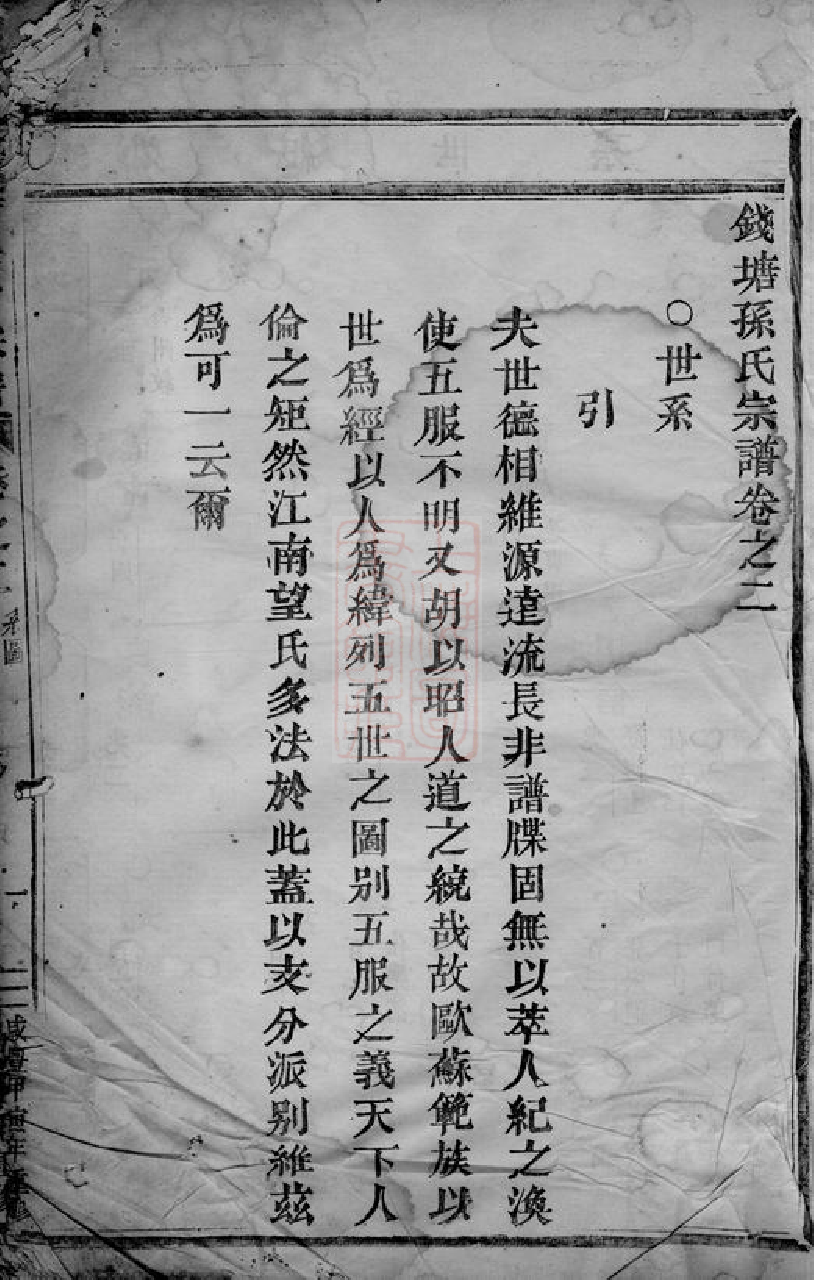 錢塘孫氏宗譜卷之二
○世系
引
夫世德相維源遠流長非譜牒固無以萃人紀之渙
使五服不明又胡以昭人道之統哉故歐蘇範族以
世爲經以人爲緯列五世之圖別五服之義天下人
倫之矩然江南望氏多法於此蓋以支分派別維茲
爲可一云爾
系圖
咸豐甲寅年